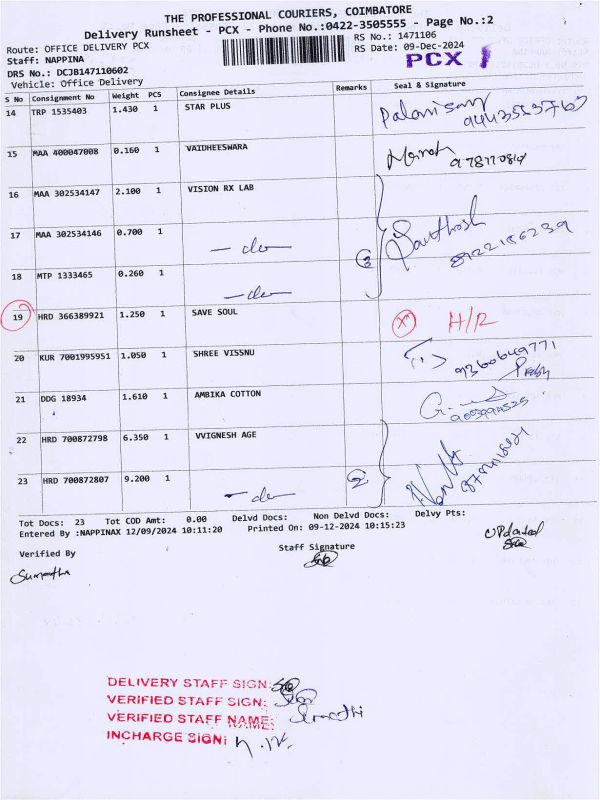 THE PROFESSIONAL COURIERS, COIMBATORE
Delivery Runsheet - PCX - Phone No.:0422-3505555 - Page No.:2
Route: OFFICE DELIVERY PCX RS No.: 1471106
Staff: NAPPINA RS Date: 09-Dec-2024
DRS No.: DCJB147110602 PCX 1
Vehicle: Office Delivery
S No Consignment No Weight PCS Consignee Details Remarks Seal & Signature
14 TRP 1535403 1.430 1 STAR PLUS Palanisamy
15 MAA 400047008 0.160 1 VAIDHEESWARA
16 MAA 302534147 2.100 1 VISION RX LAB
17 MAA 302534146 0.700 1 - do - 3 Santhosh
18 MTP 1333465 0.260 1 - do -
19 HRD 366389921 1.250 1 SAVE SOUL X H/R
20 KUR 7001995951 1.050 1 SHREE VISSNU 9360649771
21 DDG 18934 1.610 1 AMBIKA COTTON
22 HRD 700872798 6.350 1 VVIGNESH AGE
23 HRD 700872807 9.200 1 - do - 2
Tot Docs: 23 Tot COD Amt: 0.00 Delvd Docs: Non Delvd Docs: Delvy Pts:
Entered By :NAPPINAX 12/09/2024 10:11:20 Printed On: 09-12-2024 10:15:23
Verified By Staff Signature Updated
Sumathi
DELIVERY STAFF SIGN:
VERIFIED STAFF SIGN:
VERIFIED STAFF NAME: Sumathi
INCHARGE SIGN: